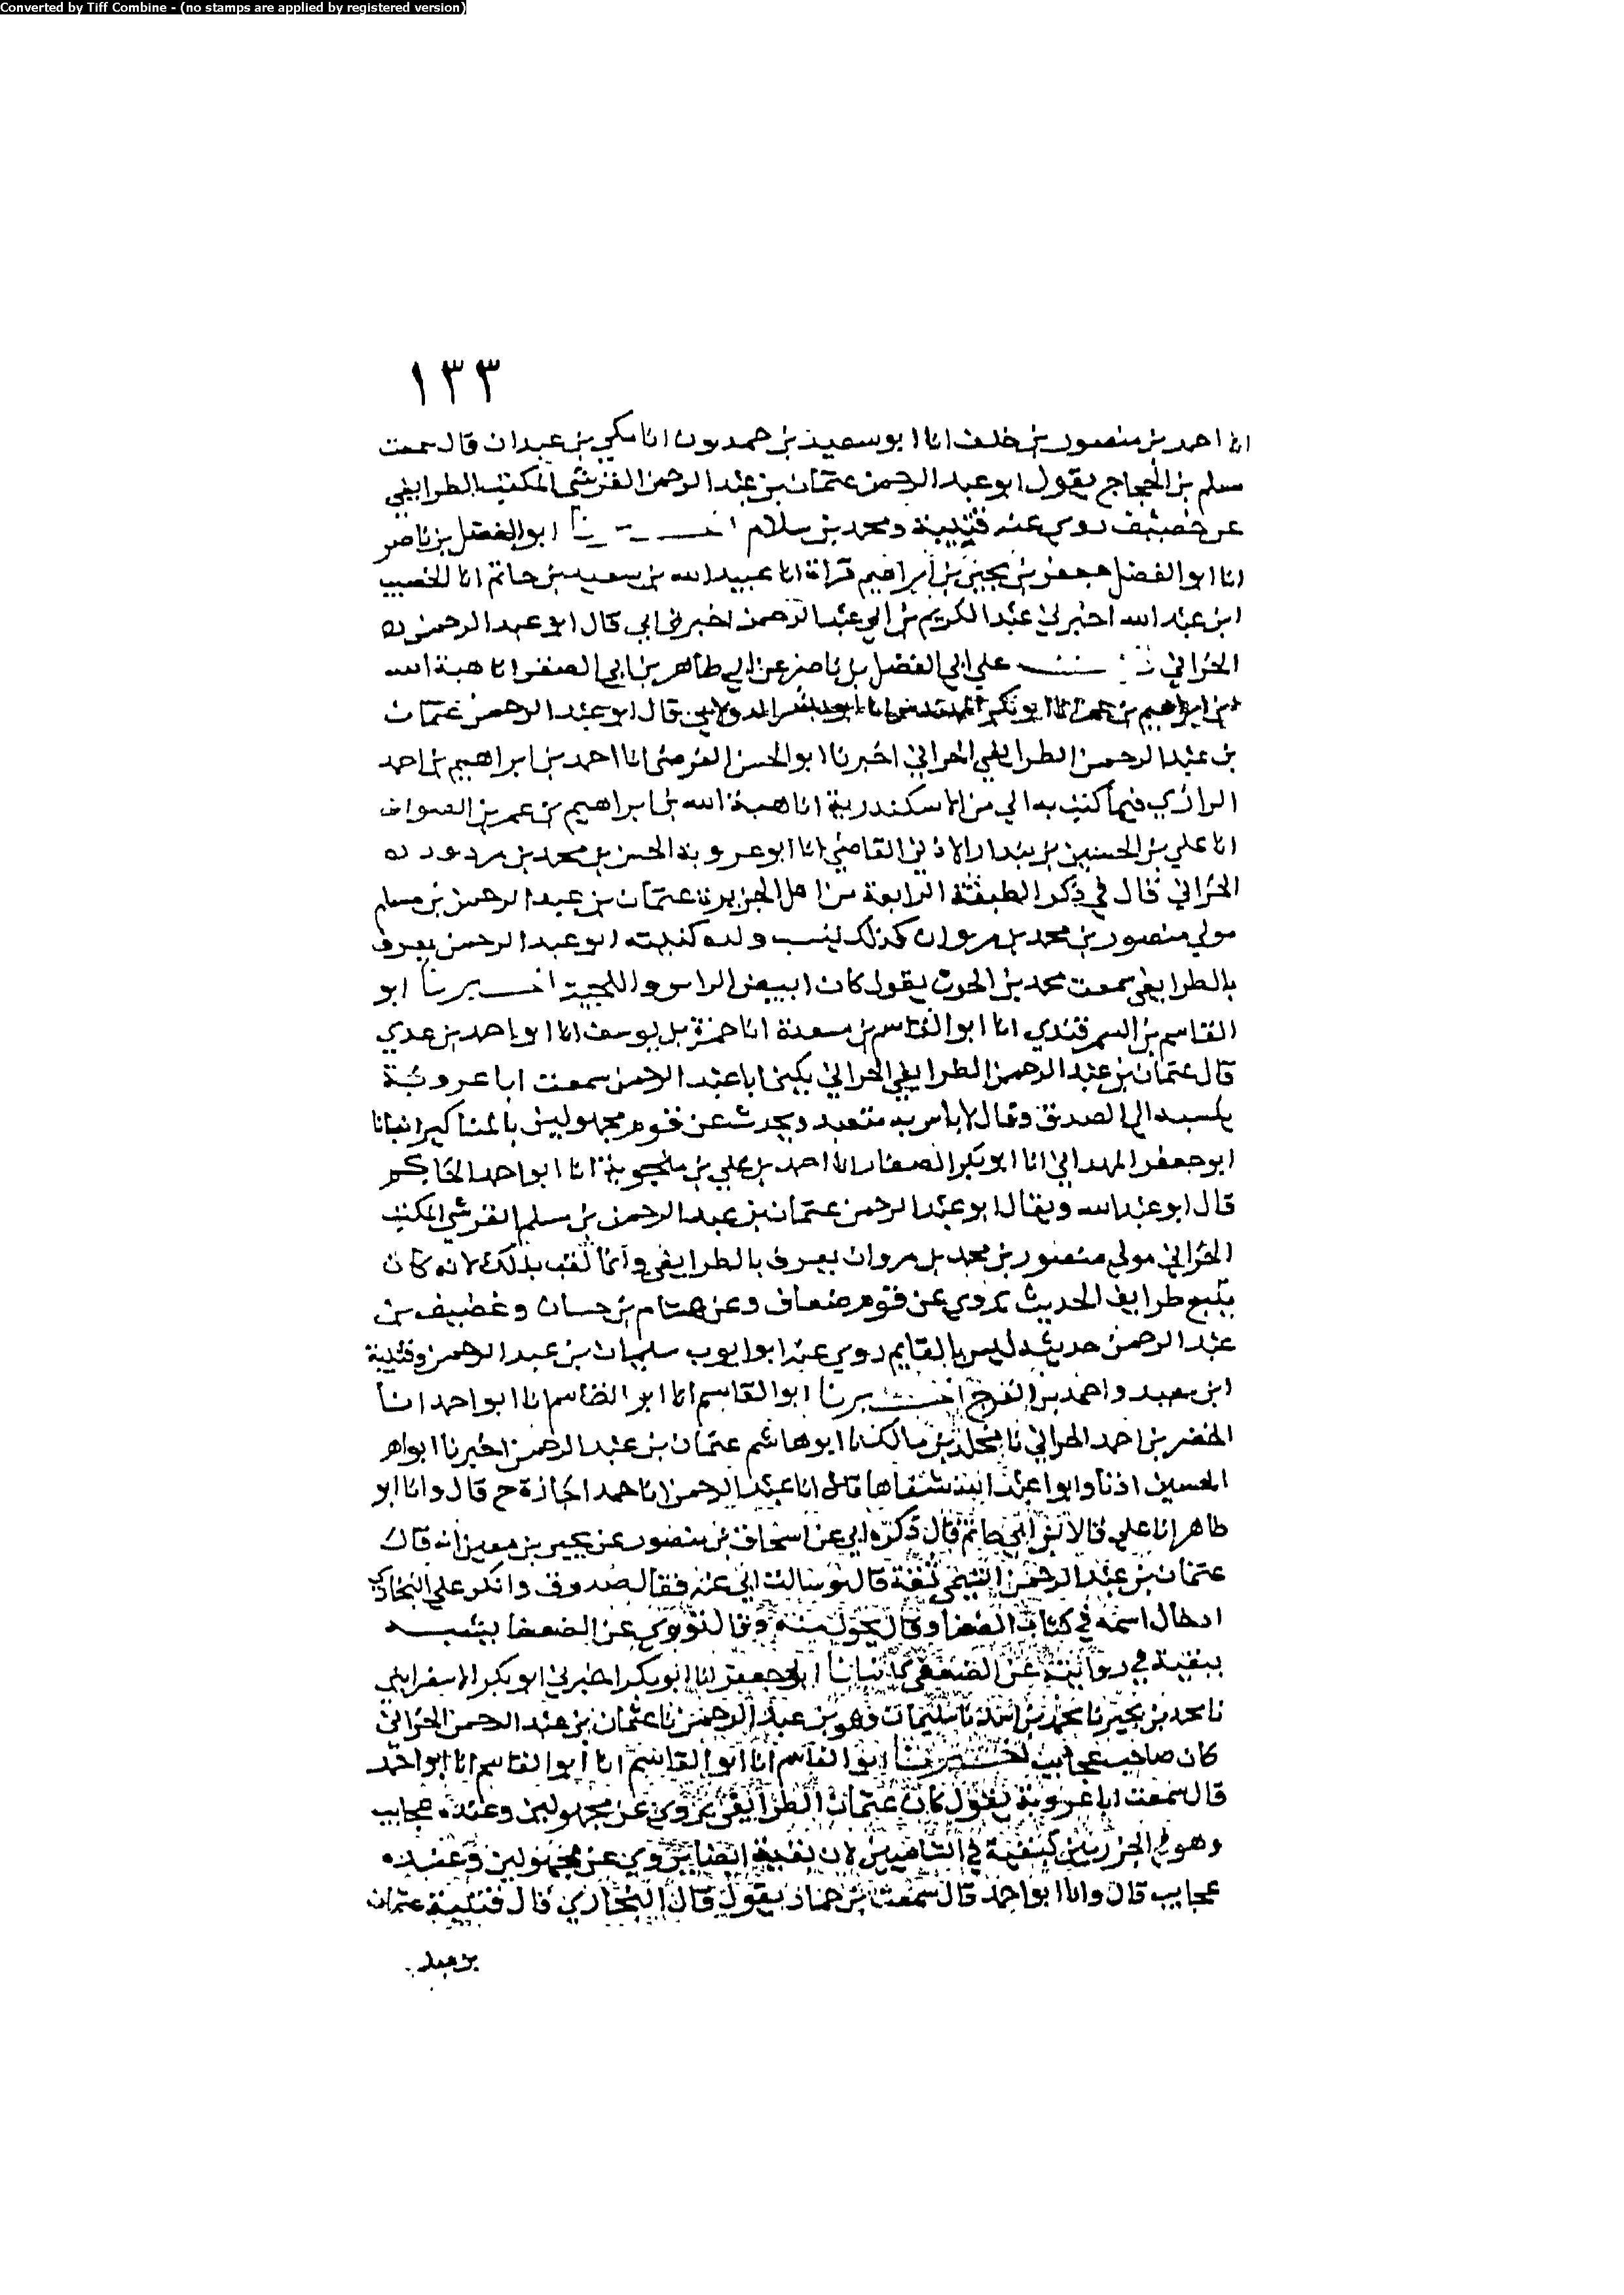 Converted by Tiff Combine - (no stamps are applied by registered version)
١٣٣
انا احمد بن منصور بن خلف انا ابو سعيد بن حمدون انا مكي بن عبدان قال سمعت
مسلم بن الحجاج يقول ابو عبد الرحمن عثمان بن عبد الرحمن القرشي المكتب الطرايفي
عن خصيف روي عنه قتيبة ومحمد بن سلام ابو الفضل بن ناصر
انا ابو الفضل جعفر بن يحيى بن ابراهيم قراة انا عبيد الله بن سعيد بن حاتم انا الخصيب
ابن عبد الله اخبرني عبد الكريم بن ابي عبد الرحمن اخبرني ابي قال ابو عبد الرحمن
الحراني علي ابي الفضل بن ناصر عن ابي طاهر بن ابي الصقر انا هبة الله
ابن ابراهيم بن عمر انا ابو بكر المهندس انا ابو بشر الدولابي قال ابو عبد الرحمن عثمان
بن عبد الرحمن الطرايفي الحراني اخبرنا ابو الحسن الفرضي انا احمد بن ابراهيم بن احمد
الرازي فيما كتب به الي من الاسكندرية انا هبة الله بن ابراهيم بن عمر بن الصواف
انا علي بن الحسين بن بندار الاذني القاضي انا ابو عروبة الحسن بن محمد بن مردود
الحراني قال في ذكر الطبقة الرابعة من اهل الجزيرة عثمان بن عبد الرحمن بن مسلم
مولي منصور بن محمد بن مروان كذلك ينسب ولده كنيته ابو عبد الرحمن يعرف
بالطرايفي سمعت محمد بن الحرث يقول كان ابيض الراس واللحية اخبرنا ابو
القاسم بن السمرقندي انا ابو القاسم بن مسعدة انا حمزة بن يوسف انا ابو احمد بن عدي
قال عثمان بن عبد الرحمن الطرايفي الحراني يكنى ابا عبد الرحمن سمعت ابا عروبة
ينسبه الي الصدق وقال لا باس به متعبد ويحدث عن قوم مجهولين بالمناكير انبانا
ابو جعفر الهمداني انا ابو بكر الصفار انا احمد بن علي بن منجويه انا ابو احمد الحاكم
قال ابو عبد الله ويقال ابو عبد الرحمن عثمان بن عبد الرحمن بن مسلم القرشي المكتب
الحراني مولي منصور بن محمد بن مروان يعرف بالطرايفي وانما لقب بذلك لانه كان
يتبع طرايف الحديث يروي عن قوم ضعاف وعن هشام بن حسان و غطيف بن
عبد الرحمن حديثه ليس بالقايم روي عنه ابو ايوب سليمان بن عبد الرحمن وقتيبة
ابن سعيد واحمد بن الفرج اخبرنا ابو القاسم انا ابو القاسم انا ابو احمد انا
الخضر بن احمد الحراني نا مخلد بن مالك نا ابو هاشم عثمان بن عبد الرحمن اخبرنا ابو
الحسين اذنا وابو عبد الله شفاها قالا انا عبد الرحمن انا حمد اجازة ح قال وانا ابو
طاهر انا علي قالا انا ابن ابي حاتم قال ذكره ابي عن اسحاق بن منصور عن يحيى بن معين انه قال
عثمان بن عبد الرحمن التيمي ثقة قال وسالت ابي عنه فقال صدوق وانكر علي البخاري
ادخال اسمه في كتاب الضعفا وقال يحول منه وقال يروي عن الضعفا يشبه
ببقية في روايته عن الضعفي انبانا ابو جعفر انا ابو بكر اخبرني ابو بكر الاسفرايني
نا محمد بن نا سليمان وهو بن عبد الرحمن نا عثمان بن عبد الرحمن الحراني
كان صاحب عجايب اخبرنا ابو القاسم انا ابو القاسم انا ابو القاسم انا ابو احمد
قال سمعت ابا عروبة يقول كان عثمان الطرايفي يروي عن مجهولين وعنده عجايب
وهو في الجزريين كبقية في الشاميين لان بقية ايضا يروي عن مجهولين وعنده
عجايب قال وانا ابو احمد قال سمعت بن حماد يقول قال البخاري قال قتيبة عثمان
بن عبد